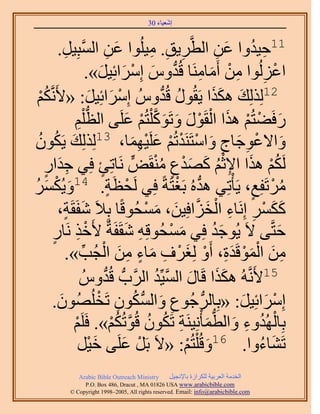 إشعياء 30
11حِيدُوا عَنِ الطَّرِيقِ. مِيلُوا عَنِ السَّبِيلِ.
اعْزِلُوا مِنْ أَمَامِنَا قُدُّوسَ إِسْرَائِيلَ».
12لِذلِكَ هكَذَا يَقُولُ قُدُّوسُ إِسْرَائِيلَ: «لأَنَّكُمْ
رَفَضْتُمْ هذَا الْقَوْلَ وَتَوَكَّلْتُمْ عَلَى الظُّلْمِ
وَالاعْوِجَاجِ وَاسْتَنَدْتُمْ عَلَيْهِمَا، 13لِذلِكَ يَكُونُ
لَكُمْ هذَا الإِثْمُ كَصَدْعٍ مُنْقَضٍّ نَاتِئٍ فِي جِدَارٍ
مُرْتَفِعٍ، يَأْتِي هَدُّهُ بَغْتَةً فِي لَحْظَةٍ. 14وَيُكْسَرُ
كَكَسْرِ إِنَاءِ الْخَزَّافِينَ، مَسْحُوقًا بِلاَ شَفَقَةٍ،
حَتَّى لاَ يُوجَدُ فِي مَسْحُوقِهِ شَقَفَةٌ لأَخْذِ نَارٍ
مِنَ الْمَوْقَدَةِ، أَوْ لِغَرْفِ مَاءٍ مِنَ الْجُبِّ».
15لأَنَّهُ هكَذَا قَالَ السَّيِّدُ الرَّبُّ قُدُّوسُ
إِسْرَائِيلَ: «بِالرُّجُوعِ وَالسُّكُونِ تَخْلُصُونَ.
بِالْهُدُوءِ وَالطُّمَأْنِينَةِ تَكُونُ قُوَّتُكُمْ». فَلَمْ
تَشَاءُوا. 16وَقُلْتُمْ: «لاَ بَلْ عَلَى خَيْل
Arabic Bible Outreach Ministry الخدمة العربية للكرازة بالإنجيل
P.O. Box 486, Dracut , MA 01826 USA www.arabicbible.com
© Copyright 1998–2005, All rights reserved. Email: info@arabicbible.com